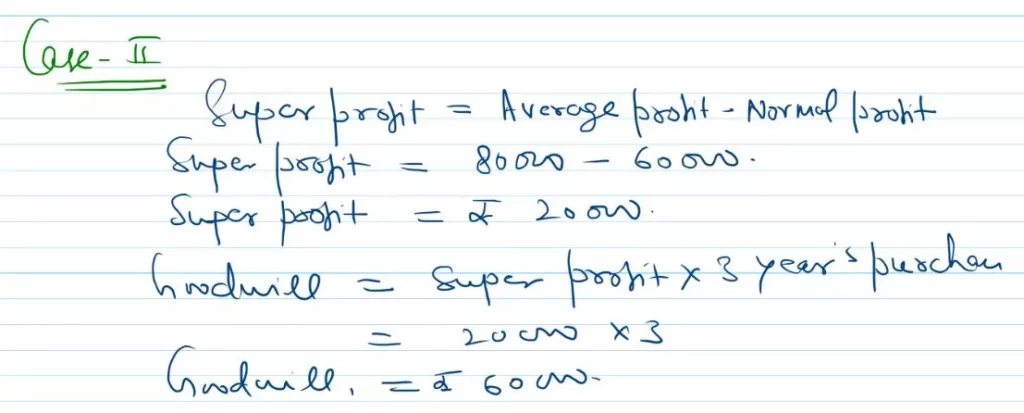 Case - II
Super profit = Average profit - Normal profit
Super profit = 80000 - 60000.
Super profit = ₹ 20000.
Goodwill = Super profit × 3 year's purchase
= 20000 × 3
Goodwill. = ₹ 60000.